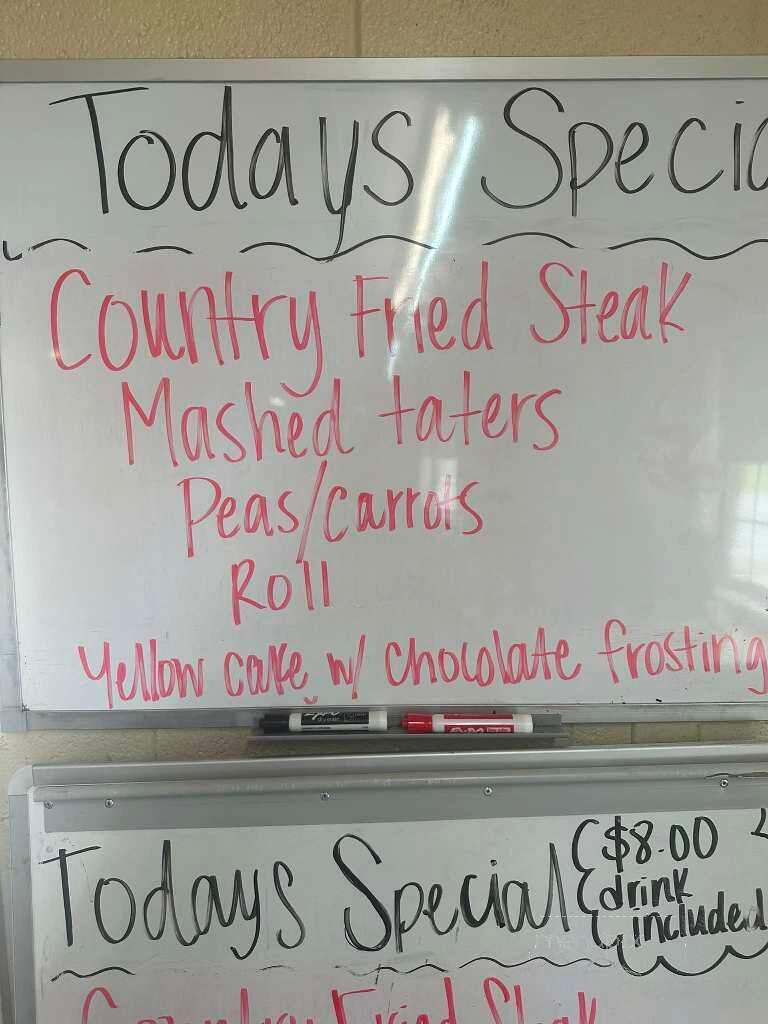 Todays Speci
Country Fried Steak
Mashed taters
Peas/carrots
Roll
Yellow cake w/ chocolate frosting
EXPO
EXPO
Todays Special
($8.00
drink
included
Country Fried Steak